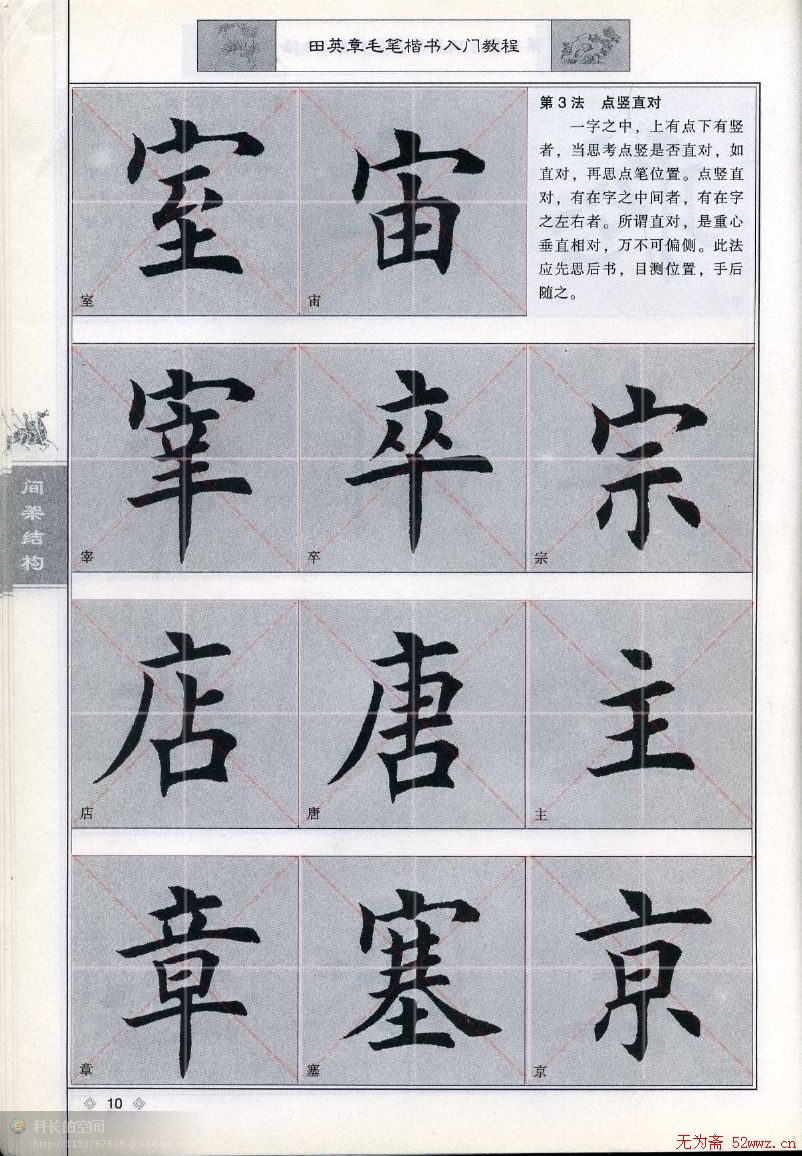 田英章毛笔楷书入门教程
第3法 点竖直对
一字之中，上有点下有竖
者，当思考点竖是否直对，如
直对，再思点笔位置。点竖直
对，有在字之中间者，有在字
之左右者。所谓直对，是重心
垂直相对，万不可偏侧。此法
应先思后书，目测位置，手后
随之。
室 宙
室 宙
宰 卒 宗
宰 卒 宗
间架结构
店 唐 主
店 唐 主
章 塞 京
章 塞 京
10
科长的空间
http://1193767618.qzone.qq.com
无为斋 52wwz.cn